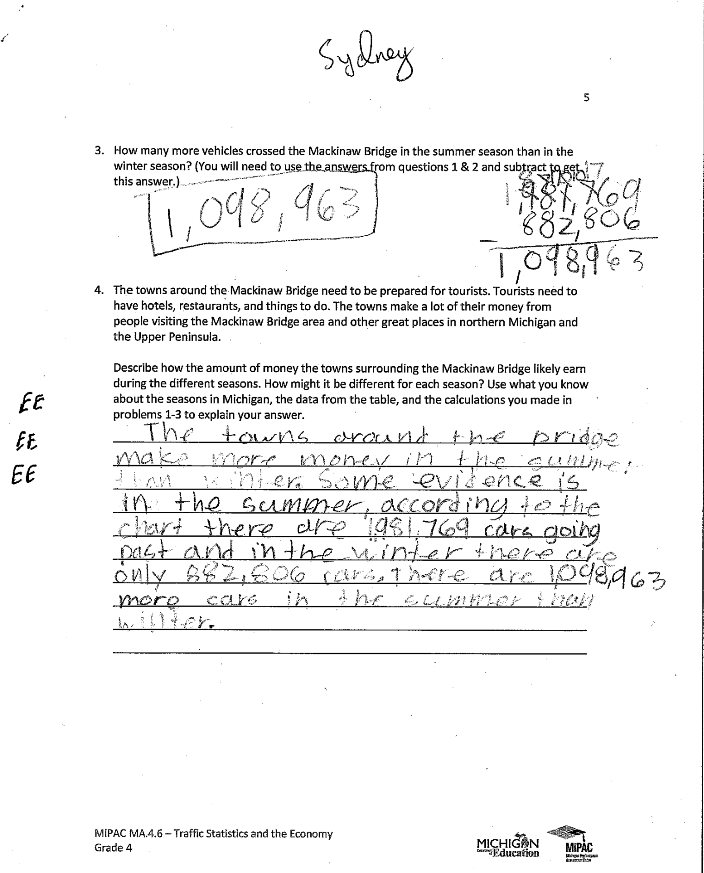 Sydney
5
3. How many more vehicles crossed the Mackinaw Bridge in the summer season than in the
winter season? (You will need to use the answers from questions 1 & 2 and subtract to get
this answer.)
1,098,963
882,806
1,098,963
4. The towns around the Mackinaw Bridge need to be prepared for tourists. Tourists need to
have hotels, restaurants, and things to do. The towns make a lot of their money from
people visiting the Mackinaw Bridge area and other great places in northern Michigan and
the Upper Peninsula.
Describe how the amount of money the towns surrounding the Mackinaw Bridge likely earn
during the different seasons. How might it be different for each season? Use what you know
about the seasons in Michigan, the data from the table, and the calculations you made in
problems 1-3 to explain your answer.
EE
EE
EE
The towns around the bridge
make more money in the summer
than winter. Some evidence is
in the summer, according to the
chart there are 1981,769 cars going
past and in the winter there are
only 882,806 cars. There are 1,098,963
more cars in the summer than
winter.
MiPAC MA.4.6 – Traffic Statistics and the Economy
Grade 4
MICHIGAN
Education
MiPAC